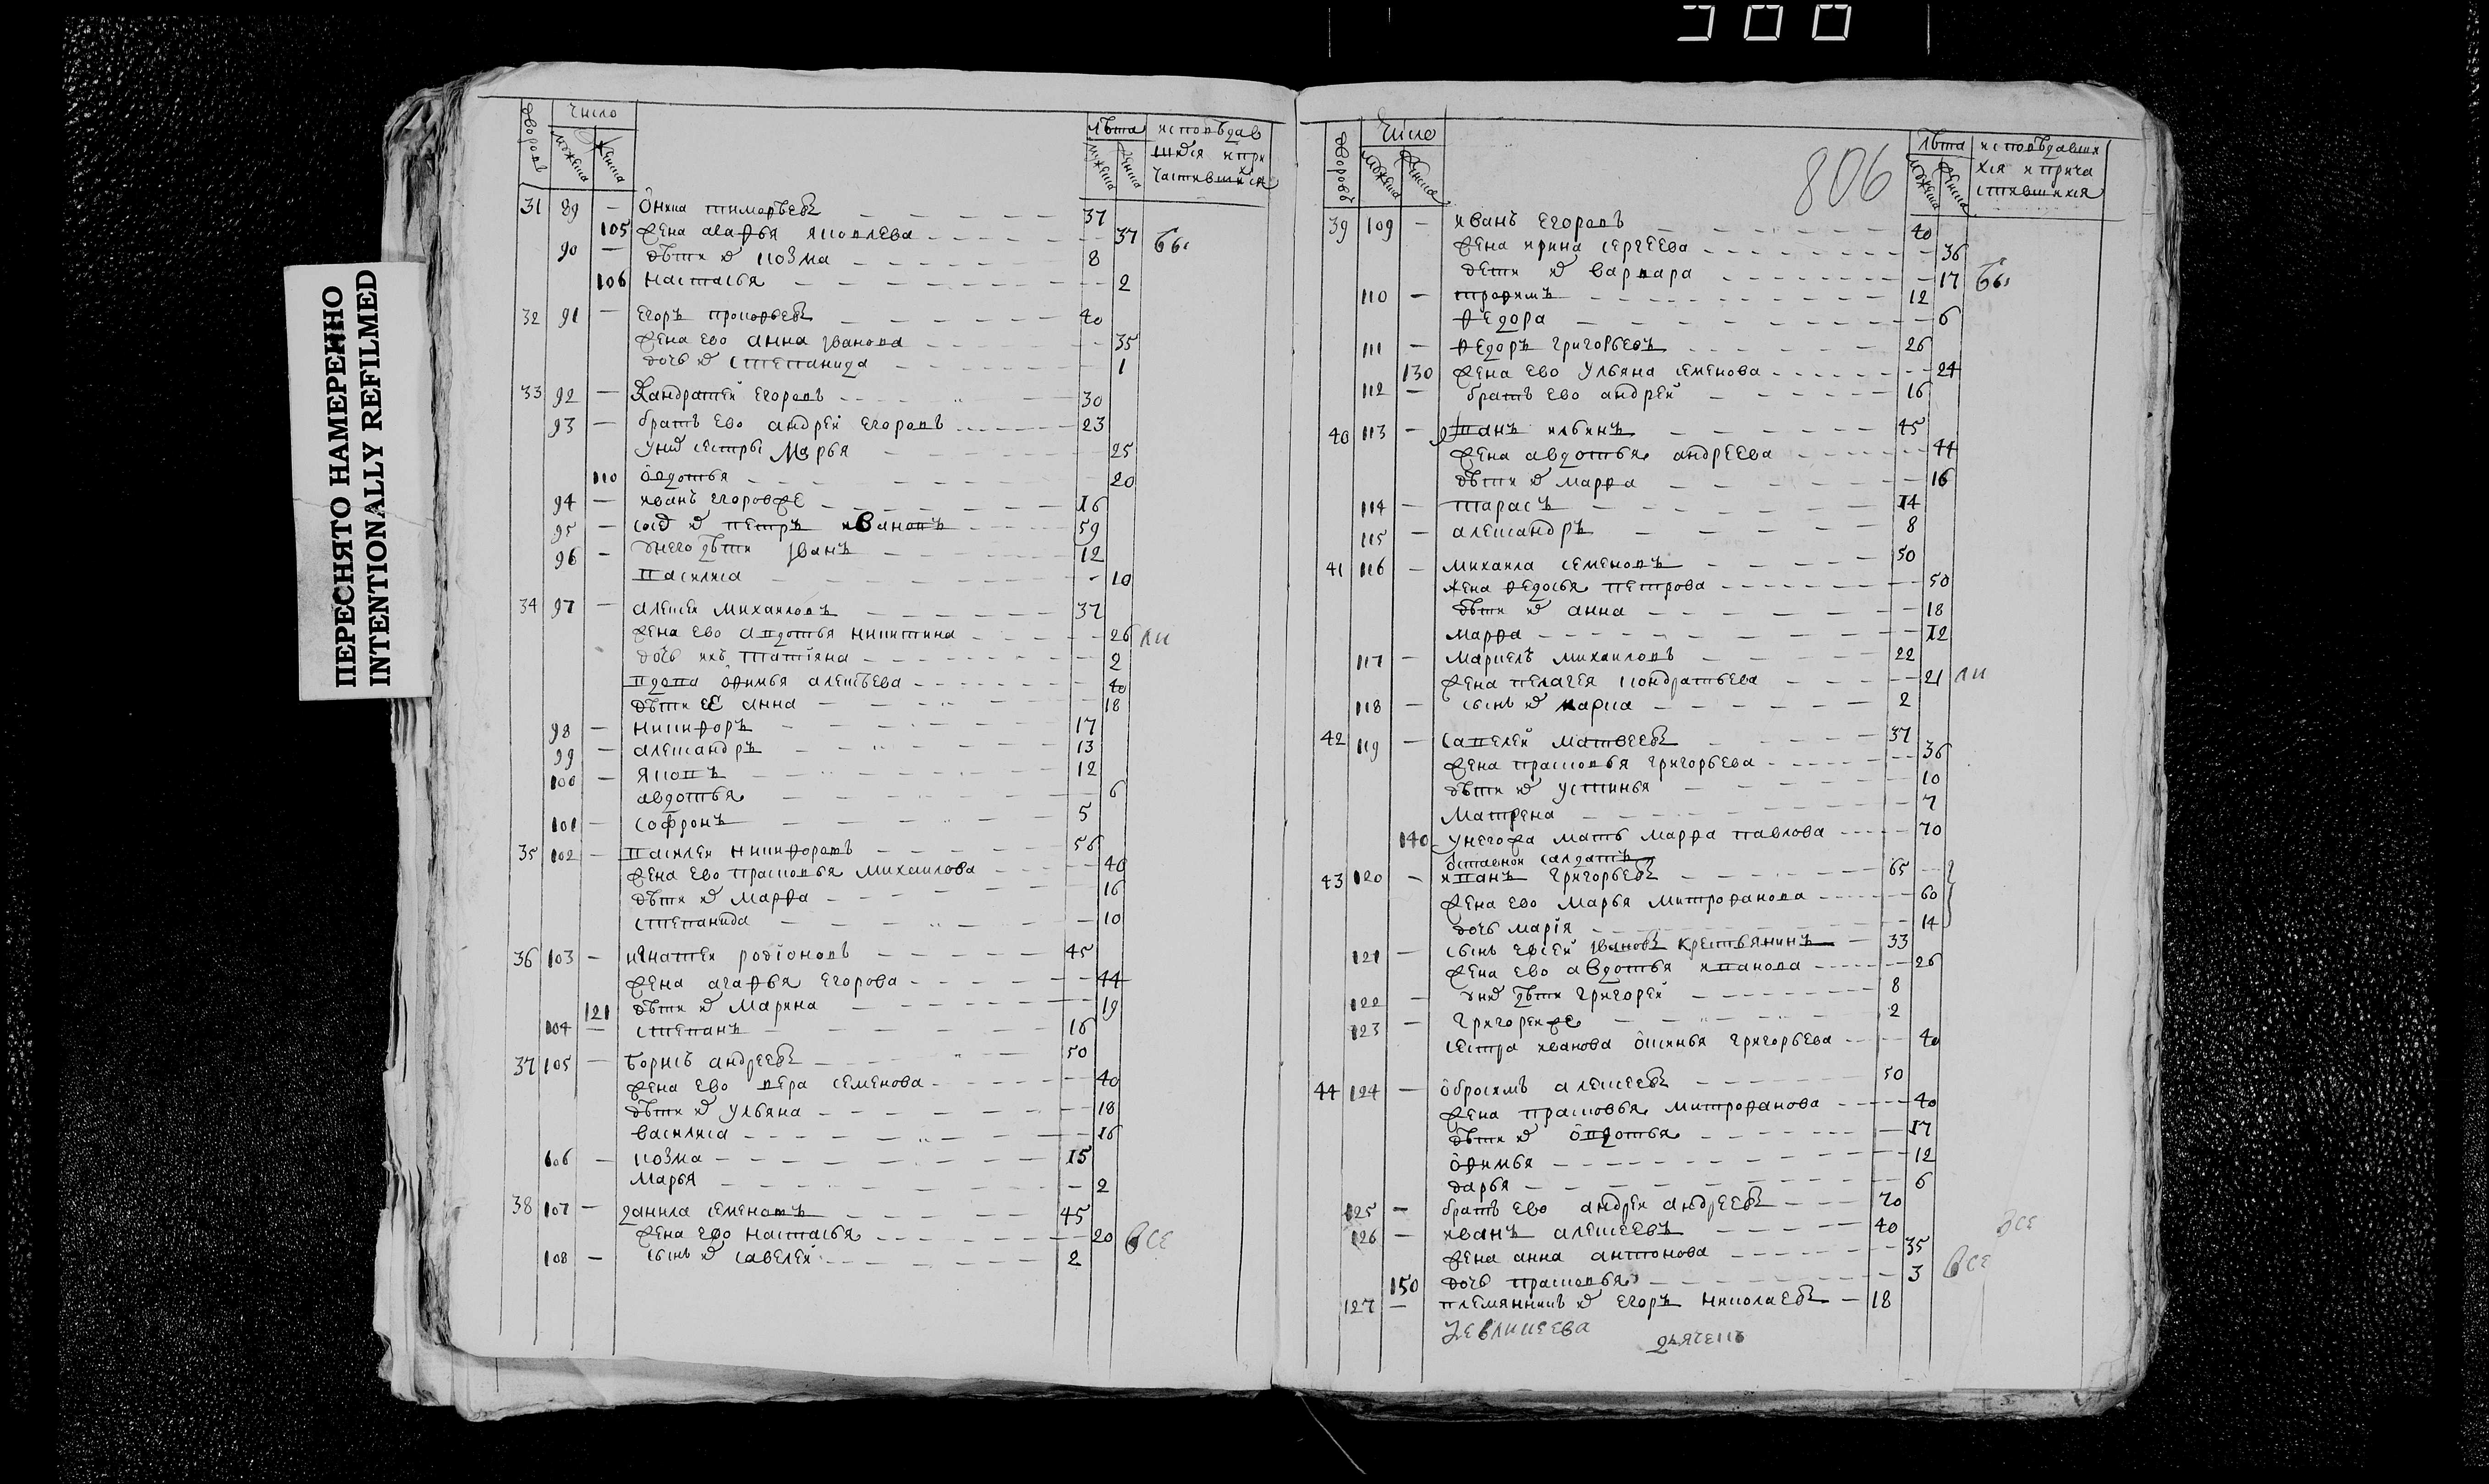 ПЕРЕСНЯТО НАМЕРЕННО
INTENTIONALLY REFILMED
число
дворовъ мужеска женска лѣта исповѣдав
мужеска женска шихся и при
частившихся
31 89 — Оника тимофѣевъ 37
105 жена агафья яковлева 37
90 — дѣти их козма 8
106 настасья 2
32 91 — Егоръ прокофьевъ 40
жена ево анна iванова 35
дочь их степанида 1
33 92 — Кандратей Егоровъ 30
93 — братъ ево андрей Егоровъ 23
у них сестры Марья 25
110 овдотья 20
94 — иванъ Егоровже 16
95 — петръ ивановъ 59
96 — у него дѣти iванъ 12
василиса 10
34 97 — алексей Михаиловъ 37
жена ево авдотья никитина 26
дочь ихъ татiяна 2
вдова офимья алексѣева 40
дѣти еѣ анна 18
98 — никифоръ 17
99 — александръ 13
100 — яковъ 12
авдотья 6
101 — софронъ 5
35 102 — василей никифоровъ 56
жена ево прасковья михаилова 40
дѣти их марфа 16
степанида 10
36 103 — игнатей родiоновъ 45
жена агафья Егорова 44
121 дѣти их Марина 19
104 — степанъ 16
37 105 — борисъ андреевъ 50
жена ево вера семенова 40
дѣти их ульяна 18
василиса 16
106 — козма 15
Марья 2
38 107 — данила семеновъ 45
жена ево настасья 20 все
108 — сынъ их савелей 2
806
число
дворовъ мужеска женска лѣта исповѣдавши
мужеска женска хся и прича
стившихся
39 109 — иванъ Егоровъ 40
жена ирина сергеева 36
дѣти их варвара 17
110 — трофимъ 12
федора 6
111 — федоръ григорьевъ 26
130 жена ево ульяна семенова 24
112 — братъ ево андрей 16
40 113 — иванъ ильинъ 45
жена авдотья андреева 44
дѣти их марфа 16
114 — тарасъ 14
115 — александръ 8
41 116 — михаила семеновъ 50
жена федосья петрова 50
дѣти их анна 18
марфа 12
117 — Маркелъ михаиловъ 22
жена пелагея кондратьева 21
118 — сынъ их марка 2
42 119 — савелей матвеевъ 37
жена прасковья григорьева 36
дѣти их устинья 10
матрена 7
140 у негожа мать марфа павлова 70
отставной салдатъ
43 120 — иванъ григорьевъ 65
жена ево марья митрофанова 60
дочь марiя 14
121 — сынъ евсей iвановъ крестьянинъ 33
жена ево авдотья иванова 26
122 — у них дѣти григорей 8
123 — григорейже 2
сестра иванова оксинья григорьева 40
44 124 — обросимъ алексеевъ 50
жена прасковья митрофанова 40
дѣти их овдотья 17
офимья 12
дарья 6
125 — братъ ево андрей андреевъ 70
126 — иванъ алексеевъ 40
все
жена анна антонова 35
150 дочь прасковья 3 все
127 — племянникъ их Егоръ николаевъ 18